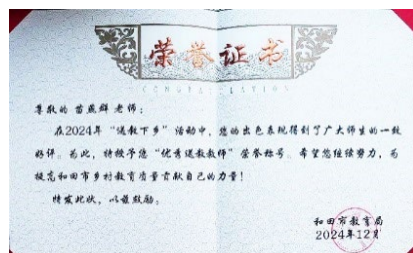 荣誉证书
CONGRATULATION
尊敬的 苗燕群 老师：
在2024年“送教下乡”活动中，您的出色表现得到了广大师生的一致
好评。为此，特授予您“优秀送教教师”荣誉称号。希望您继续努力，为
提高和田市乡村教育质量贡献自己的力量！
特发此状，以兹鼓励。
和田市教育局
2024年12月